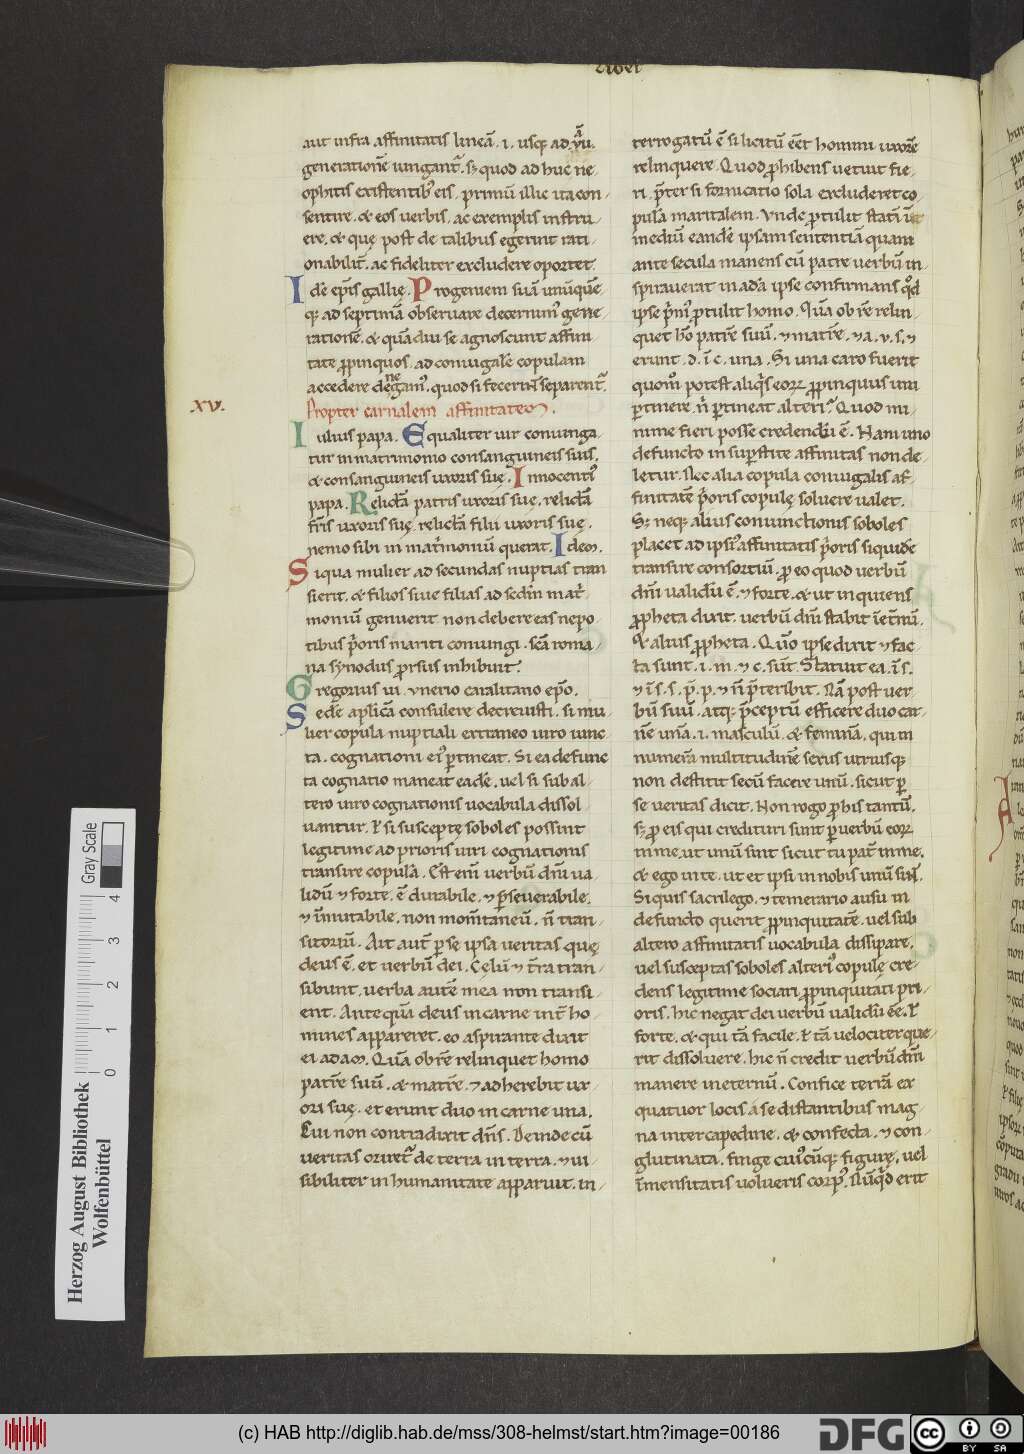 Liber
aut infra affinitatis lineā .i. usq; ad .vii.
generationē iungant̄. sꝫ quod ad huc ne
ophitis existentib; eis . primū illic ita con
sentire . & eos uerbis . ac exemplis instru
ere . & quę post de talibus egerint rati
onabilit̄ . ac fideliter excludere oportet.
Idē ep̄is gallię . Progeniem suā unūquē
q; ad septimā obseruare decernim᷒ gene
rationē . & quādiu se agnoscunt affini
tate ꝓpinquos . ad coniugalē copulam
accedere denegam᷒ . quod si fecerin̄t separent̄.
XV.
Propter carnalem affinitatem .
Iulius papa . Equaliter uir coniunga
tur in matrimonio consanguineis suis .
& consanguineis uxoris suę . Innocenti᷒
papa . Relictā patris uxoris suę . relictā
fr̄is uxoris suę . relictā filii uxoris suę .
nemo sibi in mat̄moniū querat . Idem .
Siqua mulier ad secundas nuptias tran
sierit . & filios siue filias ad sedm̄ mat̄
monium genuerit non debere eas nepo
tibus p̄oris mariti coniungi . sc̄a roma
na synodus ꝓrsus inhibuit .
Gregorius ui . unerio caralitano ep̄o .
Sedē aplicā consulere decreuisti . si mu
lier copula nuptiali extraneo uiro iunc
ta . cognationi ei᷒ ꝑtineat . Si ea defunc
ta cognatio maneat eadē . uel si sub al
tero uiro cognationis uocabula dissol
uantur . ł si susceptę soboles possint
legitime ad prioris uiri cognationis
transire copulā . Est eni uerbū dn̄i ua
lidū ⁊ forte . ē durabile . ⁊ ꝑseuerabile .
⁊ īmutabile . non momtaneū . n̄ tran
sitoriū . Ait aut̄ ꝑ se ipsa ueritas quę
deus ē . et uerbū dei . Cęlū ⁊ t̄ra tran
sibunt . uerba autē mea non transi
ent . Antequā deus in carne int̄ ho
mines appareret . eo aspirante dixit
ei adam . Quā obrē relinquet homo
patrē suū . & matrē . ⁊ adherebit ux
ori suę . et erunt duo in carne una .
Cui non contradixit dn̄s . Deinde cū
ueritas oriret̄ de terra in terra . ⁊ ui
sibiliter in humanitate apparuit . in
terrogatū ē si licitū eēt homini uxorē
relinquere . Quod ꝓhibens uetuit fie
ri . p̄ter si fornicatio sola excluderet co
pula maritalem . Vnde ꝓtulit statī in
mediū eandē ipsam sententiā quam
ante secula manens cū patre uerbū in
spirauerat in adā ipse confirmans qd̄
ipse p̄m᷒ ꝓtulit homo . Quā ob rē relin
quet hō patrē suū . ⁊ matrē . ⁊ a . v . s . ⁊
erunt . d . ī c . una . Si una caro fuerit
quom̊ potest aliq̇s eoꝝ ꝓpinquus uni
ꝑtinere . n̄ ꝑtineat alteri . Quod mi
nime fieri posse credendū ē . Nam uno
defuncto in suꝑstite affinitas non de
letur . Nec alia copula coniugalis af
finitatē p̄oris copulę soluere ualet .
Sꝫ neq; alius coniunctionis soboles
placet ad ipsi᷒ affinitatis p̄oris siquidē
transire consortiū . ꝓ eo quod uerbū
dn̄i ualidū ē . ⁊ forte . & ut inquiens
ꝓpheta dixit . uerbū dn̄i stabit ī et̄nū .
& alius ꝓpheta . Qūo ipse dixit ⁊ fac
ta sunt . i . m . ⁊ c . sūt . Statuit ea . ī s .
⁊ ī s . s . p̄ . p . ⁊ n̄ p̄teribit . Nā post uer
bū suū . atq; p̄ceptū efficere duo car
nē unā . i . masculū . & feminā . qui in
numerā multitudinē sexus utriusq;
non destitit secū facere unū . sicut ꝑ
se ueritas dicit . Non rogo ꝓ his tantū .
sꝫ ꝓ eis qui credituri sunt ꝑ uerbū eoꝝ
in me . ut unū sint sicut tu pat̄ in me .
& ego in te . ut et ipsi in nobis unū sin̄t .
Siquis sacrilego . ⁊ temerario ausu in
defuncto querit ꝓpinquitatē . uel sub
altero affinitatis uocabula dissipare .
uel susceptas soboles alteri᷒ copulę cre
dens legitime sociari ꝓpinquitati pri
oris . hic negat dei uerbū ualidū eē . ł
forte . & qui tā facile . ł tā uelociter que
rit dissoluere . hic n̄ credit uerbū dn̄i
manere in eternū . Confice terrā ex
quatuor locis a se distantibus mag
na inter capedine . & confecta . ⁊ con
glutinata . finge cui᷒cūq; figurę . uel
īmensitatis uolueris corp᷒ . Nūq̇d erit
Herzog August Bibliothek
Wolfenbüttel
Gray Scale
0 1 2 3 4
(c) HAB http://diglib.hab.de/mss/308-helmst/start.htm?image=00186
DFG
cc
BY SA